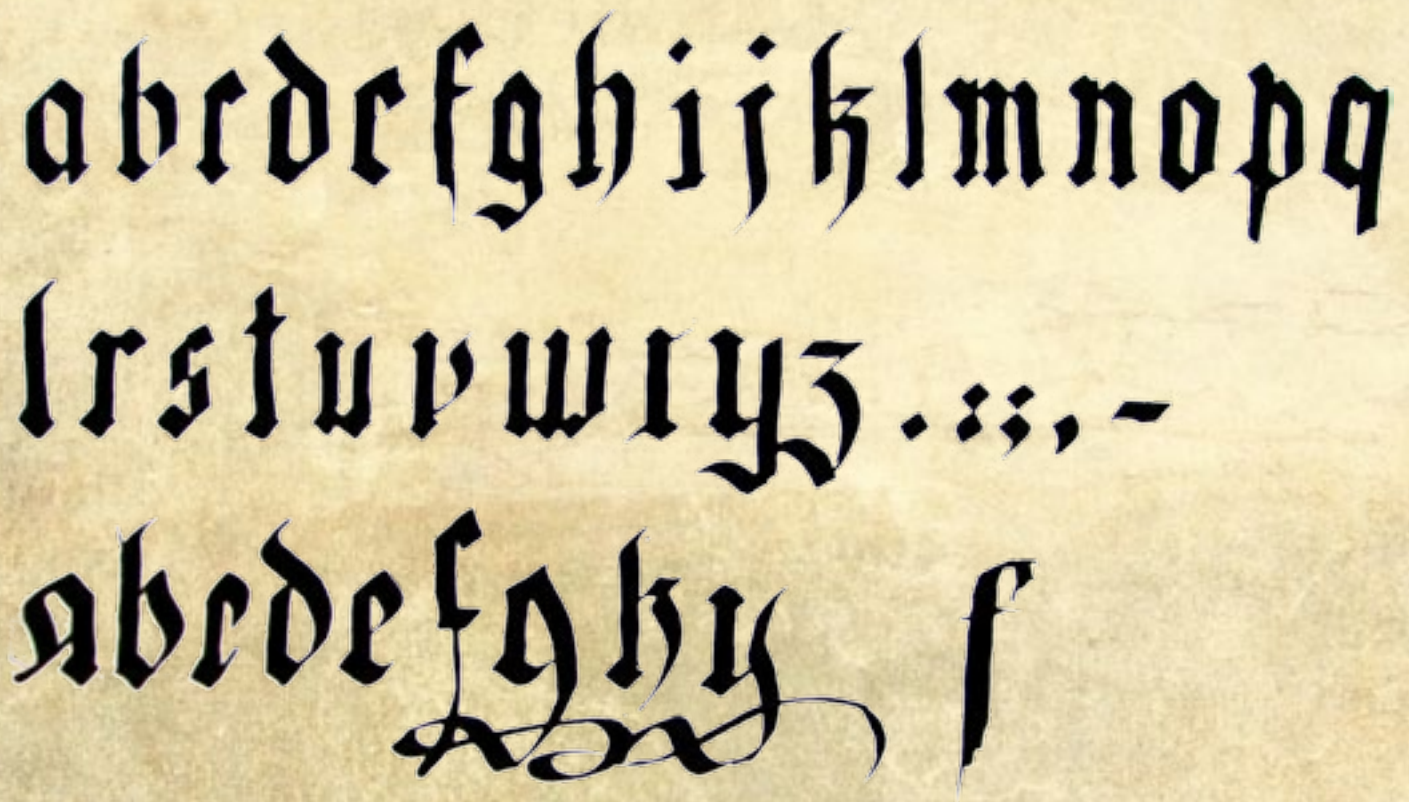 abcdefghijklmnopq
lrstuvwxyz.:;,-
abcdefgky f